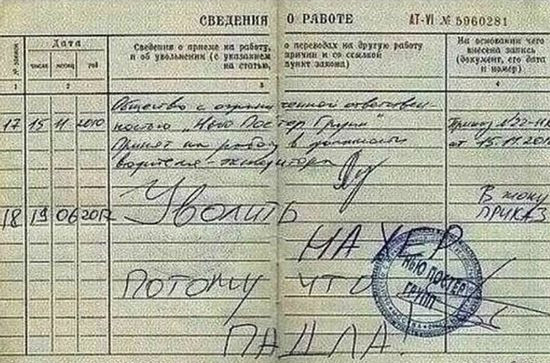 СВЕДЕНИЯ О РАБОТЕ АТ-VI № 5960281
№ записи
Дата
число месяц год
Сведения о приеме на работу, о переводах на другую работу
и об увольнении (с указанием причин и со ссылкой
на статью, пункт закона)
На основании чего
внесена запись
(документ, его дата
и номер)
1 2 3 4
Общество с ограниченной ответствен-
ностью „Нью Постер Групп"
17 15 11 2010 Принят на работу в должности
водителя-экспедитора
Приказ
от 15.11.
18 19 06 Уволить
НАХЕР
ПОТОМУ ЧТО
ПАДЛА
В жопу
ПРИКАЗ
НЬЮ ПОСТЕР
ГРУПП